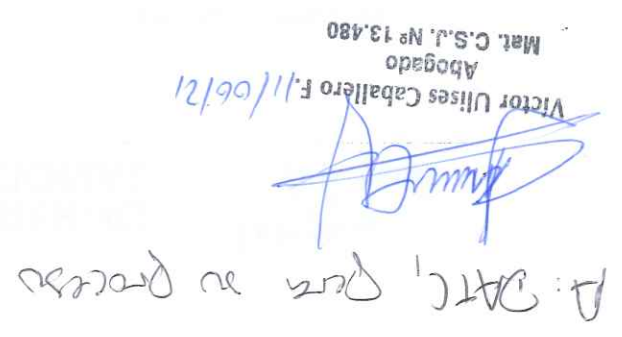 A: DATC, para su proceso
Victor Ulises Caballero F. 11/06/21
Abogado
Mat. C.S.J. Nº 13.480